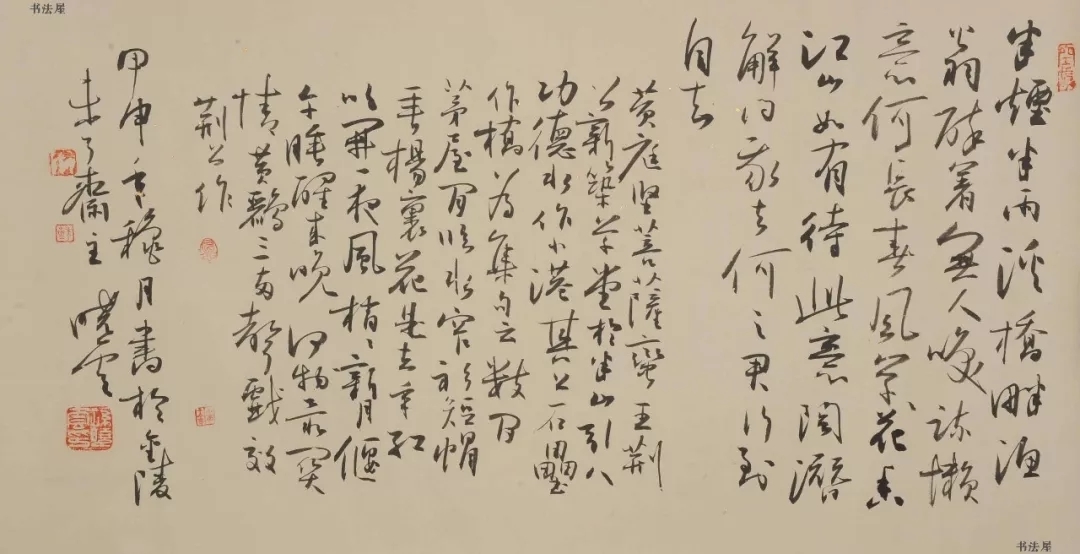 书法屋
半煙半雨溪橋畔渔
翁醉着無人唤疏懶
意何長春風草花香
江山如有待此意陶潛
解问我去何之君行到
自知
黄庭坚菩薩蠻 王荆
公新築草堂於半山引八
功德水作小港其上石疊
作橋为集句云数间
茅屋闲临水窄衫短帽
垂楊裏花是去年红
吹開一夜風梢〻新月偃
午睡醒来晚何物最関
情黄鸝三两聲戲效
荆公作
甲申穐月書於金陵
未了齋主 曉雲
书法屋